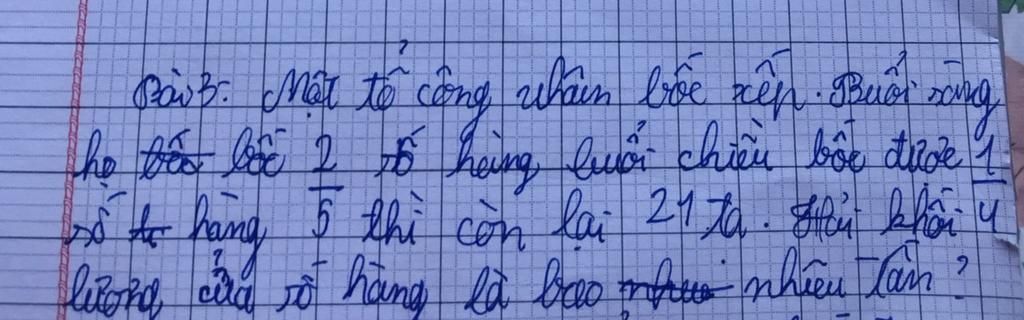 Bài 3: Một tổ công nhân bốc xếp. Buổi sáng
họ bốc 2/5 số hàng buổi chiều bốc được 1/4
số hàng thì còn lại 21 tạ. Hỏi khối
lượng của số hàng là bao nhiêu tấn?